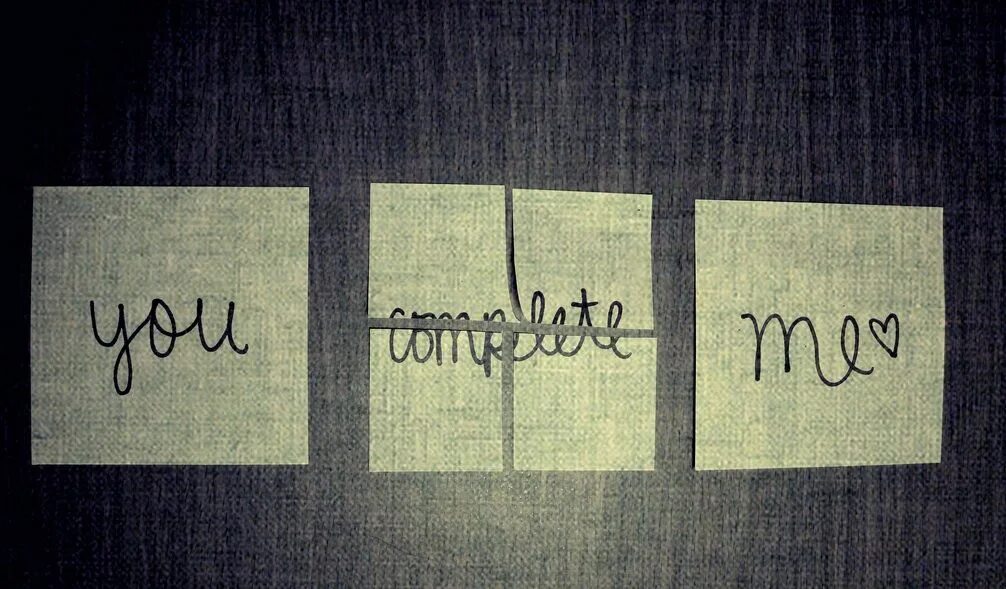 you complete me♡